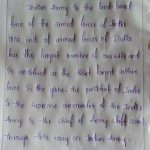 Indian Army is the land based
force of the armed forces of India
This unit of armed forces of India
has the largest number of recruits and
is considered as the third largest active
force in the globe the president of India
is the supreme commander of the India
Army is the chief of Army staff
through this essay on Indian Army.